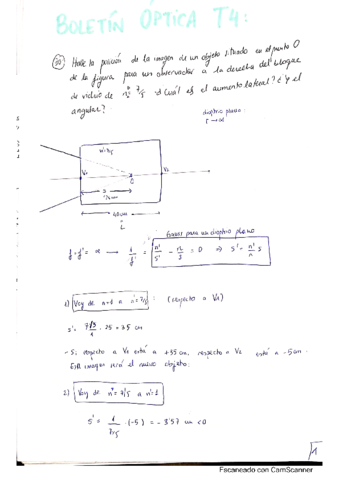 BOLETÍN ÓPTICA T4:
Halle la posición de la imagen de un objeto situado en el punto O
de la figura para un observador a la derecha del bloque
de vidrio de n = 7/5 ¿Cuál es el aumento lateral? ¿Y el
angular?
dioptrio plano:
r → ∞
n'=7/5
V₁
V₂
O
s
40cm
L
Gauss para un dioptrio plano
f = f' = ∞ → n'/s' - n/s = 0 ⇒ s' = n'/n s
1) Voy de n=1 a n'=7/5 : (respecto a V₁)
s' = 7/5 · 25 = 35 cm
- Si respecto a V₁ está a +35 cm, respecto a V₂ está a -5cm.
Esta imagen será el nuevo objeto:
2) Voy de n=7/5 a n'=1
s' = 1/7/5 · (-5) = -3'57 cm <0
1
Escaneado con CamScanner